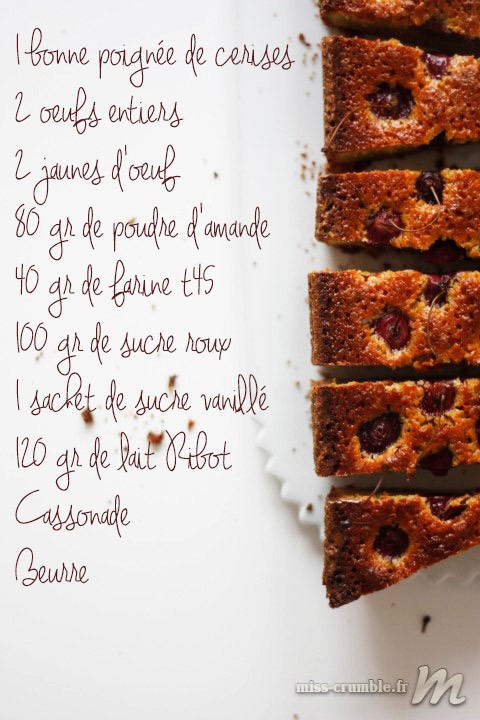 1 bonne poignée de cerises
2 oeufs entiers
2 jaunes d'oeuf
80 gr de poudre d'amande
40 gr de farine t45
100 gr de sucre roux
1 sachet de sucre vanillé
120 gr de lait Ribot
Cassonade
Beurre
miss-crumble.fr M